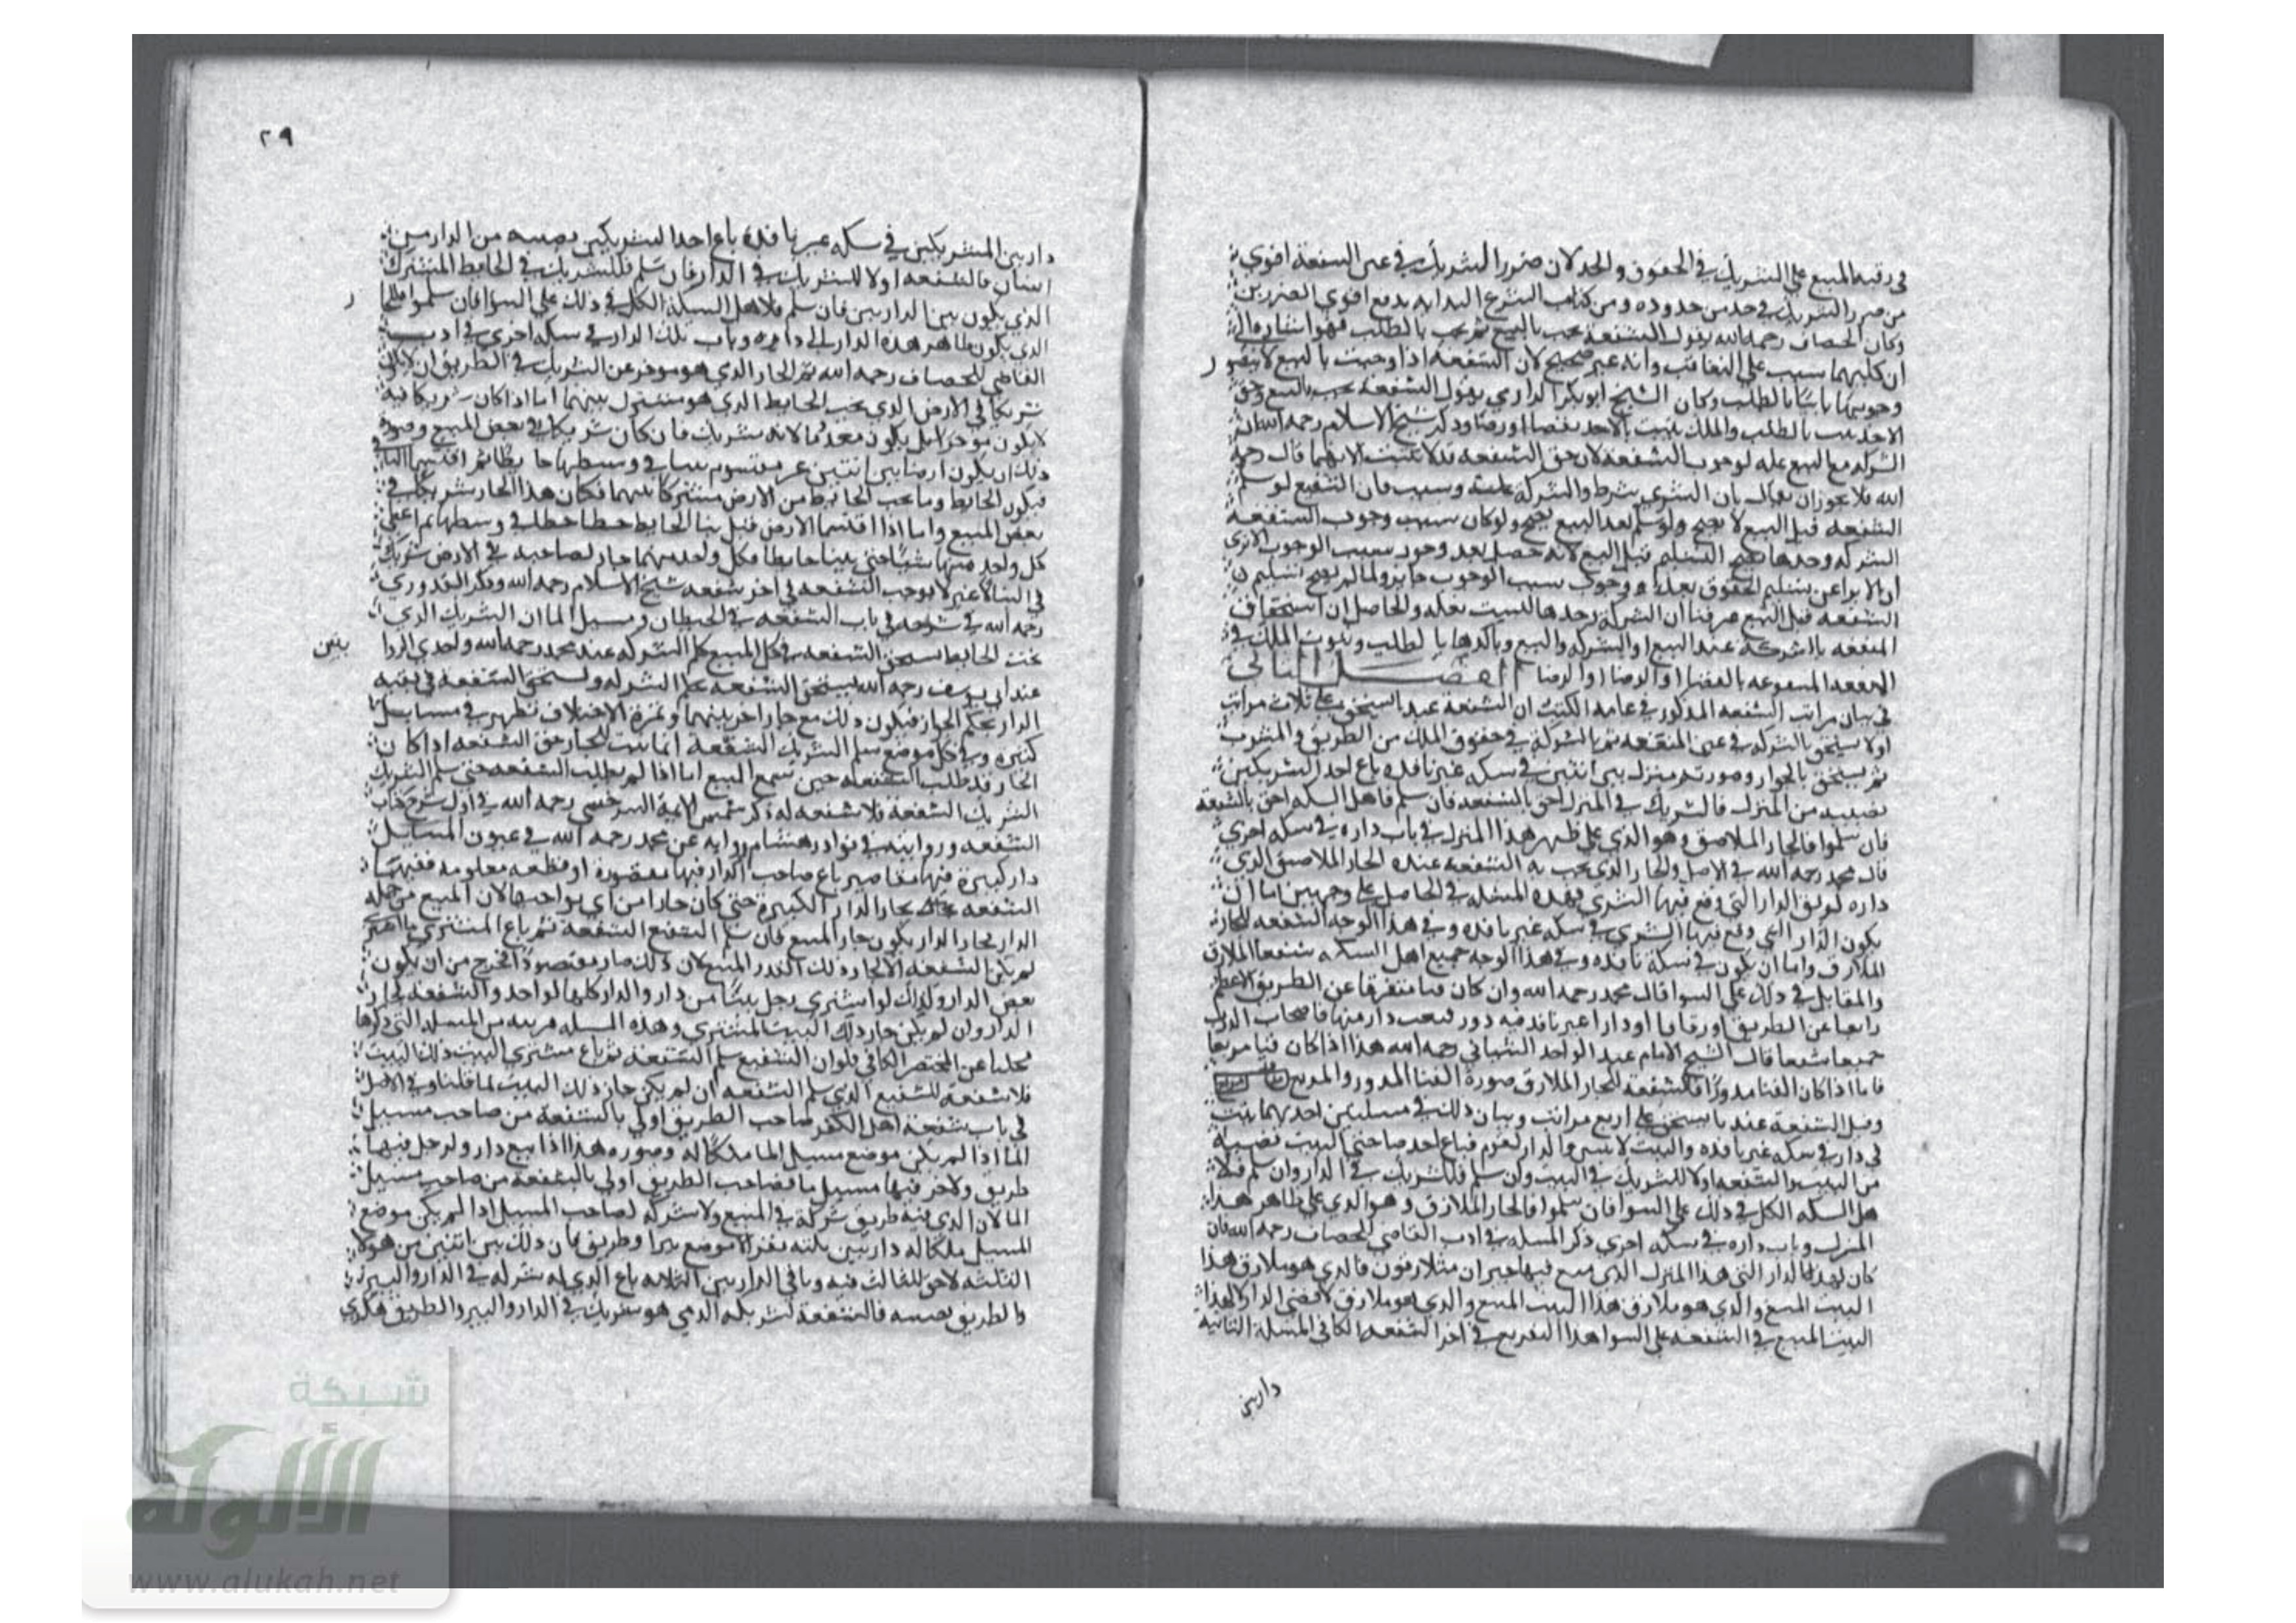 في رقبه المبيع على الشريك في الحقوق والحد لان ضرر الشريك في عين الشفعة اقوي
من ضرر الشريك في حد من حدوده ومن الشرع البدايه بدفع اقوي الضررين
وكان الخصاف رحمه الله يقول الشفعة تجب بالبيع ثم تجب بالطلب فهو اشاره الى
ان كليهما سبب على التعاقب وانه غير صحيح لان الشفعة اذا وجبت بالبيع لا يتصور
وجوبها ثانيا بالطلب وكان الشيخ ابو بكر الرازي يقول الشفعة تجب بالبيع وحق
الاخذ يثبت بالطلب والملك يثبت بالاخذ بقضا او رضا وذكر شيخ الاسلام رحمه الله ان
الشركه مع البيع عله لوجوب الشفعة لان حق الشفعة لا يثبت الا بهما قال رحمه
الله فلا يجوز ان يقال بان الشري شرط والشركة وسبب فان الشفيع لو سلم
الشفعه قبل البيع لا يصح ولو سلم بعد البيع يصح ولو كان سبب وجوب الشفعة
الشركه وحدها التسليم قبل البيع لانه حصل بعد وجود سبب الوجوب الا تري
ان الابرا عن الحقوق بعد وجود سبب الوجوب جايز ولما لم يصح تسليم
الشفعه قبل البيع عرفنا ان الشركة وحدها ليست بعله والحاصل ان استحقاق
الشفعه بالشركة عند البيع او بالشركه والبيع وتاكدها بالطلب وثبوت الملك في
البقعه المبيعه بالقضا او الرضا الفصل الثاني
في بيان مراتب الشفعه المذكور في عامه الكتب ان الشفعة عندنا تستحق على ثلاث مراتب
اولا يستحق بالشركه في عين البقعه ثم بالشركة في حقوق الملك من الطريق والشرب
ثم يستحق بالجوار وصورته منزل بين اثنين في سكه غير نافذه باع احد الشريكين
نصيبه من المنزل فالشريك في المنزل احق بالشفعه فان سلم فاهل السكه احق بالشفعة
فان سلموا فالجار الملاصق وهو الذي على ظهر هذا المنزل في باب داره في سكه اخري
قال محمد رحمه الله في الاصل والجار الذي تجب به الشفعة عنده الجار الملاصق الذي
داره لزيق الدار التي وقع فيها الشري وهذه المسئله في الحاصل على وجهين اما ان
يكون الدار التي وقع فيها الشري في سكه غير نافذه وفي هذا الوجه الشفعه للجار
الملازق واما ان يكون في سكة نافذه وفي هذا الوجه جميع اهل السكه شفعا الملازق
والمقابل في ذلك على السوا قال محمد رحمه الله وان كان متفرقا عن الطريق الاعظم
زايغا عن الطريق او زقاقا او دارا غير نافذ فيه دور فبيعت دار منها فاصحاب الدور
جميعا شفعا قال الشيخ الامام عبد الواحد الشيباني رحمه الله هذا اذا كان فنا مربعا
فاما اذا كان الفنا مدورا فالشفعة للجار الملازق صورة الفنا المدور والمربع
وقيل الشفعة عندنا تستحق على اربع مراتب وبيان ذلك في مسئلتين احديهما بيت
في دار في سكه غير نافذه والبيت لاثنين والدار لقوم فباع احد صاحبي البيت نصيبه
من البيت فالشفعه اولا للشريك في البيت وان سلم فللشريك في الدار وان سلم فلا
هل السكه الكل في ذلك على السوا فان سلموا فالجار الملازق وهو الذي على ظاهر هذا
المنزل وباب داره في سكه اخري ذكر المسله في ادب القاضي للخصاف رحمه الله فان
كان لهذه الدار التي هذا المنزل الذي بيع فيها جيران متلازقون فالذي هو ملازق هذا
البيت المبيع والذي هو ملازق هذا البيت المبيع والذي هو ملازق لاقصى الدار لا لهذا
البيت المبيع في الشفعه على السوا هذا التفريع في اخر الشفعه الكافي المسله الثانيه
دار بين
٢٩
دار بين المشتركين في سكه غير نافذه باع احد الشريكين نصيبه من الدار من
انسان فالشفعه اولا للشريك في الدار فان سلم فللشريك في الحايط المشترك
الذي يكون بين الدارين فان سلم فلاهل السكة الكل في ذلك على السوا فان سلموا فللجار
الذي يكون ظاهر هذه الدار الى داره وباب تلك الدار في سكه اخري في ادب
القاضي للخصاف رحمه الله ثم الجار الذي هو موخر عن الشريك في الطريق ان لا يكون
شريكا في الارض الذي تحت الحايط الذي هو مشترك بينهما اما اذا كان شريكا فيه
لا يكون موخرا بل يكون مقدما لانه شريك فان كان شريكا في بعض المبيع وصورة
ذلك ان يكون ارضا بين اثنين غير مقسوم بنيا في وسطها حايطا ثم اقتسما الباقي
فيكون الحايط وما تحت الحايط من الارض مشتركا بينهما فكان هذا الجار شريكا في
بعض المبيع واما اذا اقتسما الارض قبل بنا الحايط خطا خطا في وسطها ثم اعطى
كل واحد منهما شيا حتى بنيا حايطا فكل واحد منهما جار لصاحبه في الارض شريك
في البنا لا غير لا يوجب الشفعه في اخر شفعة شيخ الاسلام رحمه الله وذكر القدوري
رحمه الله في شرحه في باب الشفعه في الحيطان ومسيل الما ان الشريك الذي
تحت الحايط يستحق الشفعه في كل المبيع بحكم الشركه عند محمد رحمه الله واحدي الروايتين
عند ابي يوسف رحمه الله يستحق الشفعه بحكم الشركه ويستحق الشفعة في بقيه
الدار بحكم الجوار فيكون ذلك مع جار اخر بينهما وثمرة الاختلاف تظهر في مسايل
كثيره وفي كل موضع سلم الشريك الشفعة انما يثبت للجار حق الشفعه اذا كان
الجار قد طلب الشفعه حين سمع البيع اما اذا لم يطلب الشفعه حتى سلم الشريك
الشريك الشفعة فلا شفعه له ذكر شمس الايمة السرخسي رحمه الله في اول شرح كتاب
الشفعه وروايته في نوادر هشام رواية عن محمد رحمه الله في عيون المسايل
دار كبيرة فيها مقاصير باع صاحب الدار فيها مقصورة او قطعه معلومه ففيها
الشفعه لجار الدار الكبيرة حتى كان جارا من اي نواحيها لان المبيع من جملة
الدار فجار الدار يكون جار المبيع فان سلم الشفيع الشفعة ثم باع المشتري ما اشترى
لم يكن الشفعه الا لجار ذلك القدر المبيع لان ذلك صار مقصودا فخرج من ان يكون
بعض الدار وكذلك لو اشتري رجل بيتا من دار والدار كلها لواحد والشفعه لجار
الدار وان لم يكن جار ذلك البيت المشتري وهذه المسله قريبه من المسله التي ذكرها
محلنا عن المختصر الكافي فلو ان الشفيع سلم الشفعة ثم باع مشتري البيت ذلك البيت
فلا شفعة للشفيع الذي سلم الشفعه ان لم يكن جار ذلك البيت لما قلنا وفي الاصل
في باب شفعة اهل الكفر صاحب الطريق اولي بالشفعة من صاحب مسيل
الما اذا لم يكن موضع مسيل الما ملكا له وصوره هذا اذا بيع دار ولرجل فيها
طريق ولاخر فيها مسيل ما فصاحب الطريق اولي بالشفعه من صاحب مسيل
الما لان الذي فيه طريق شركة في المبيع ولا شركه لصاحب المسيل اذا لم يكن موضع
المسيل ملكا له دار بين ثلثه نفر الا موضع بيرا وطريق فان ذلك بين اثنين من هولا
الثلثه لا حق للثالث فيه وباقي الدار بين الثلاثه باع الذي له شركه في الدار والبير
والطريق نصيبه فالشفعة لشريكه الذي هو شريك في الدار والبير والطريق فكذي
شبكة
الألوكة
www.alukah.net